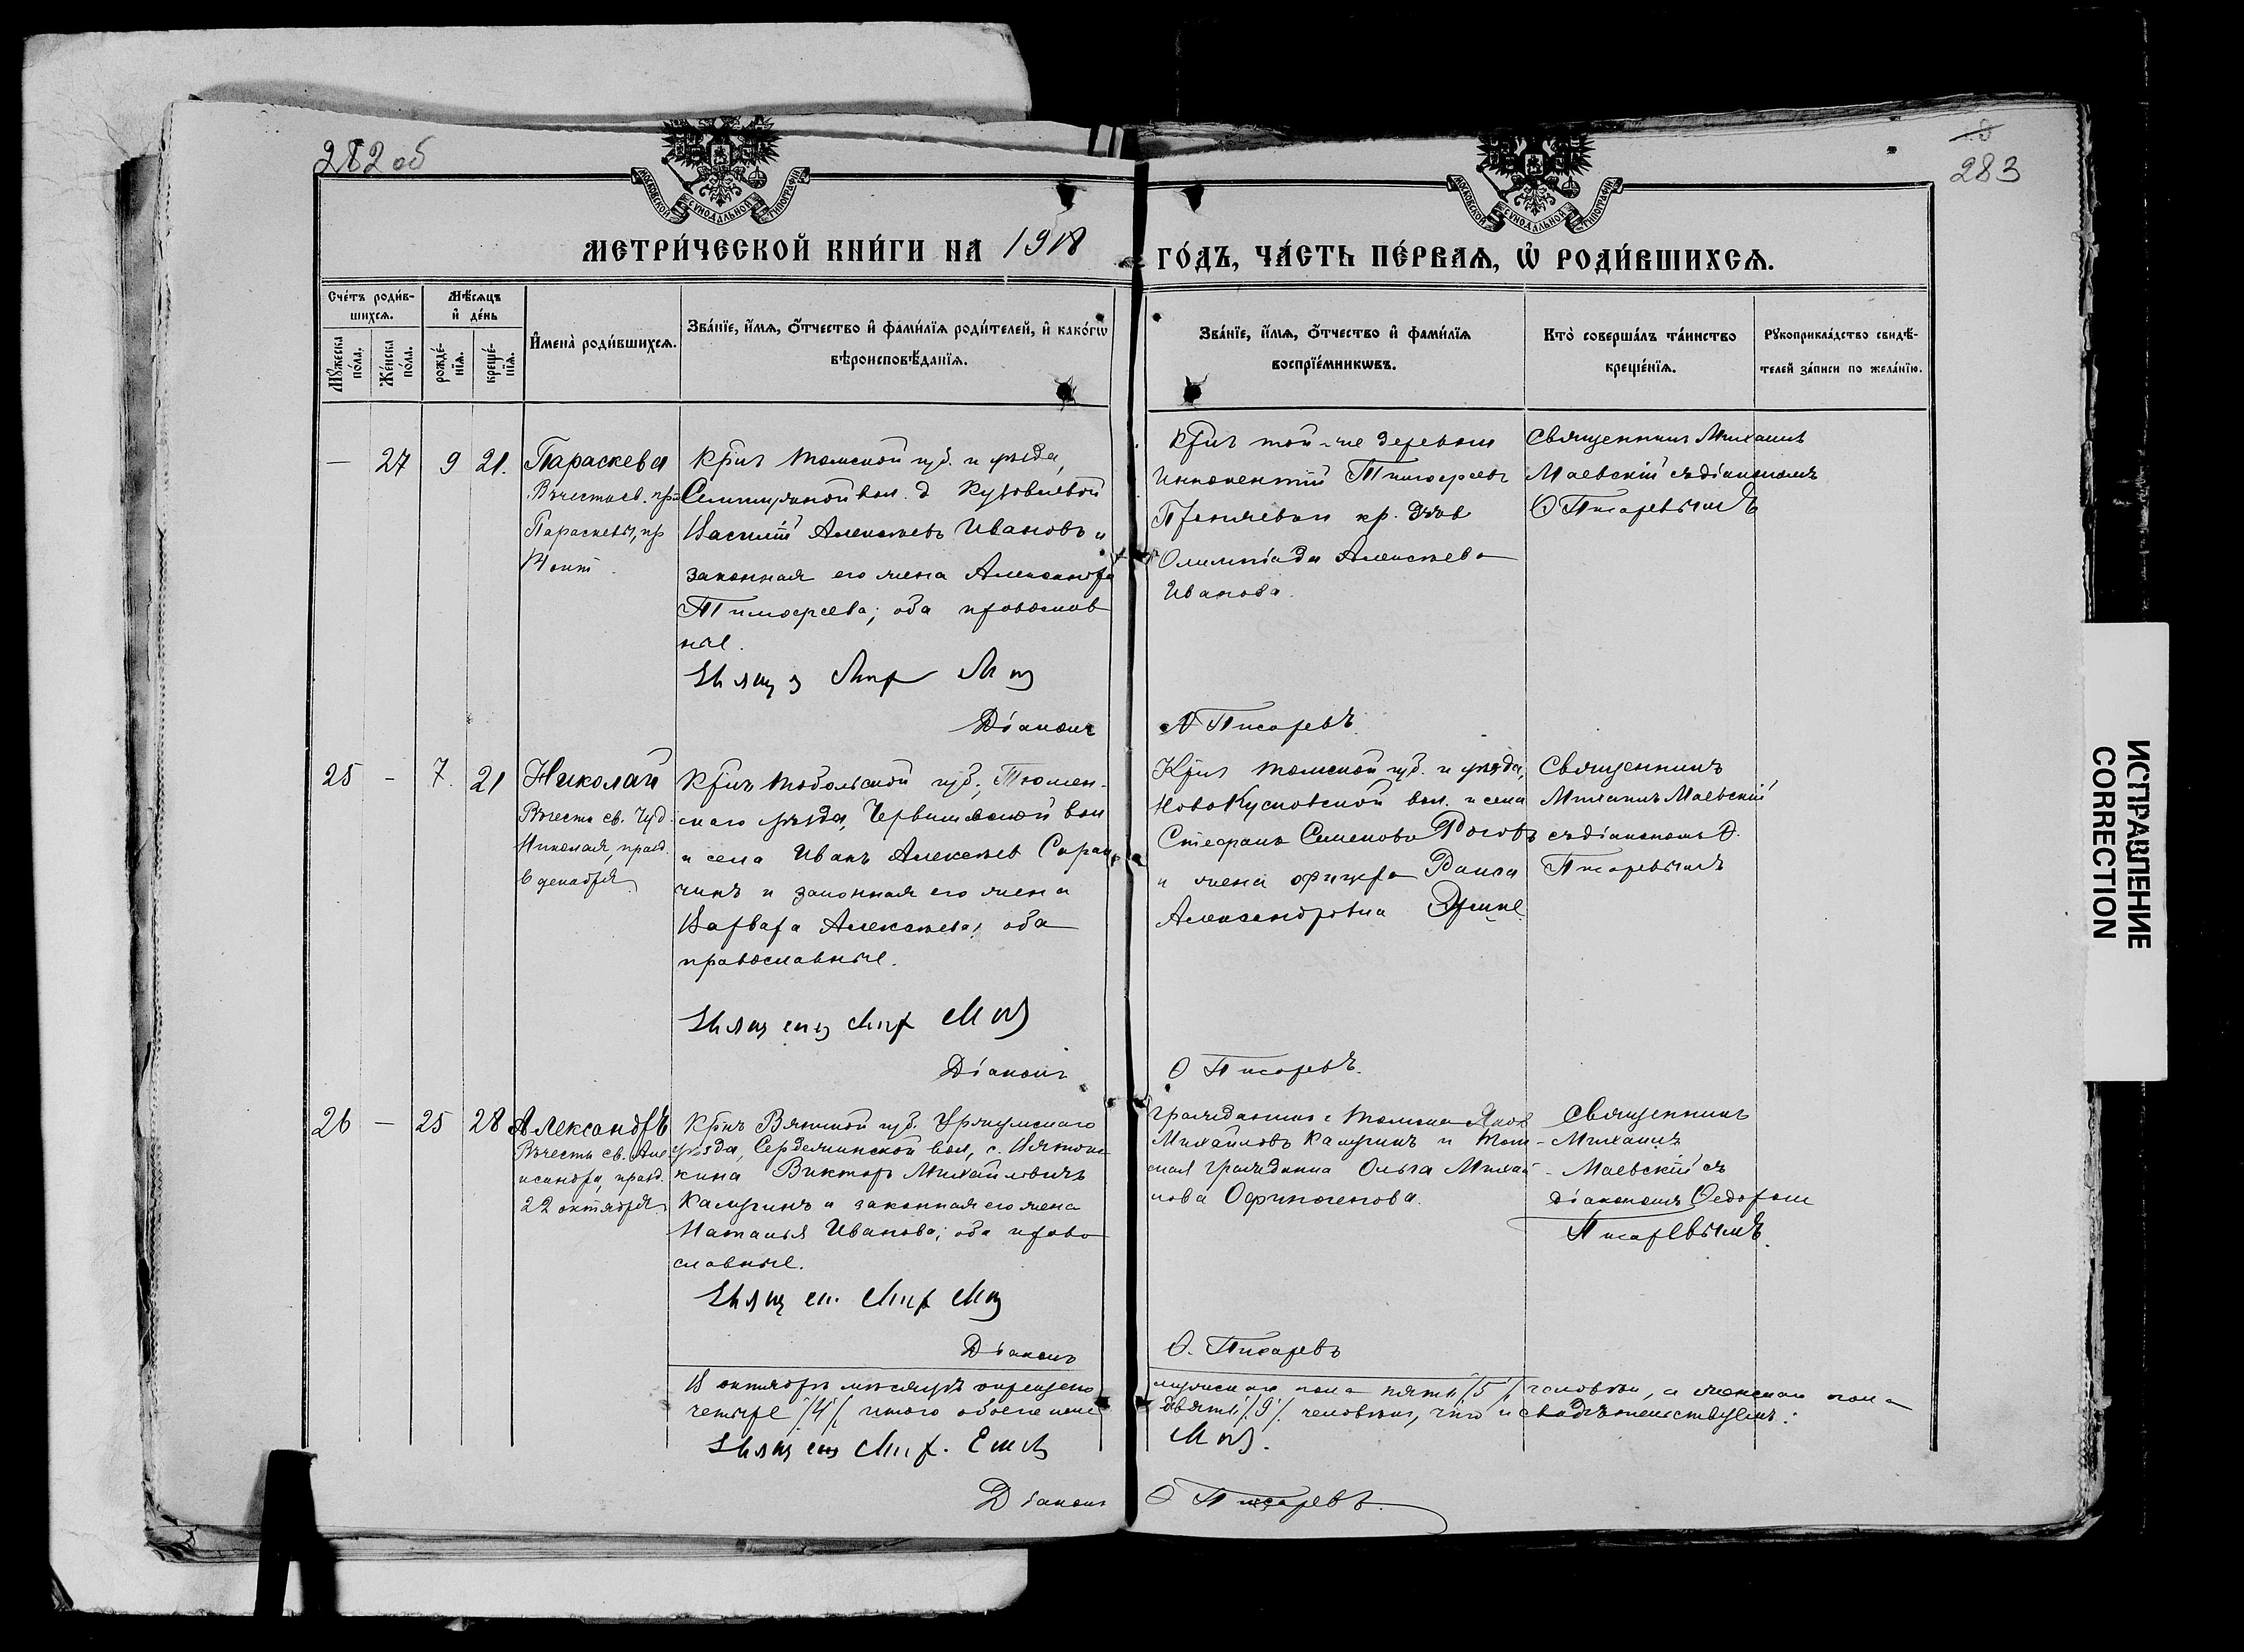 282 об
283
МОСКОВСКОЙ СѴНОДАЛЬНОЙ ТИПОГРАФІИ
МОСКОВСКОЙ СѴНОДАЛЬНОЙ ТИПОГРАФІИ
МЕТРИ́ЧЕСКОЙ КНИ́ГИ НА 1918
ГО́ДЪ, ЧА́СТЬ ПЕ́РВАѦ, Ѡ҆ РОДИ́ВШИХСѦ.
Сче́тъ роди́в-
шихсѧ.
Мѣ́сѧцъ
и҆ де́нь
Мꙋ́жеска
по́ла.
Же́нска
по́ла.
рожде́-
нїѧ.
креще́-
нїѧ.
И҆мена̀ роди́вшихсѧ.
Зва́нїе, и҆́мѧ, ѻ҆́тчество и҆ фами́лїѧ роди́телей, и҆ како́гѡ
вѣроисповѣ́данїѧ.
Зва́нїе, и҆́мѧ, ѻ҆́тчество и҆ фами́лїѧ
воспрїе́мникѡвъ.
Кто̀ соверша́лъ та́инство
креще́нїѧ.
Рꙋкоприкла́дство свидѣ́-
телей за́писи по жела́нїю.
— 27 9 21. Параскева
Въ честь св. пр
Параскевы, пр
Кр͞нъ Томской губ. и уѣзда,
вол. д
Василій Алексѣевъ Ивановъ и
законная его жена Александра
Тимофеева; оба православ
ные.
Діаконъ
Кр͞нъ той-же деревни
Иннокентій Тимофеевъ
кр. дѣв
Олимпіада Алексѣева
Иванова.
Ѳ Писаревъ.
Священникъ Михаилъ
Маевскій съ діакономъ
Ѳ Писаревымъ
25 - 7. 21 Николай
Въ честь св. Чуд.
Николая, празд.
6 декабря.
Кр͞нъ Тобольской губ., Тюмен-
скаго уѣзда, Червишевской вол
и села Иванъ Алексѣевъ Саран
чинъ и законная его жена
Варвара Алексѣева; оба
православные.
Діаконъ
Кр͞нъ Томской губ. и уѣзда,
Ново Кусковской вол. и села
Стефанъ Семеновъ Роговъ
и жена офицера Раиса
Александровна
Ѳ Писаревъ.
Священникъ
Михаилъ Маевскій
съ діакономъ Ѳ.
Писаревымъ
26 — 25 28 Александръ
Въ честь св. Але
ксандра, празд.
22 октября.
Кр͞нъ Вятской губ. Уржумскаго
уѣзда, Сердежинской вол., с.
Викторъ Михайловичъ
Калугинъ и законная его жена
Наталья Иванова; оба право
славные.
Діаконъ
Гражданинъ г. Томска Яков
Михайловъ Калугинъ и Том-
ская гражданка Ольга Михай-
лова Офиногенова.
Ѳ. Писаревъ
Священникъ
Михаилъ
Маевскій съ
діакономъ Ѳедором
Писаревымъ.
В октябрѣ мѣсяцѣ окрещено мужскаго пола пять /5/ человѣкъ, а женскаго пола
четыре /4/ итого обоего пола девять /9/ человѣкъ, что и свидѣтельствуемъ:
Діаконъ Ѳ Писаревъ.
ИСПРАВЛЕНИЕ
CORRECTION